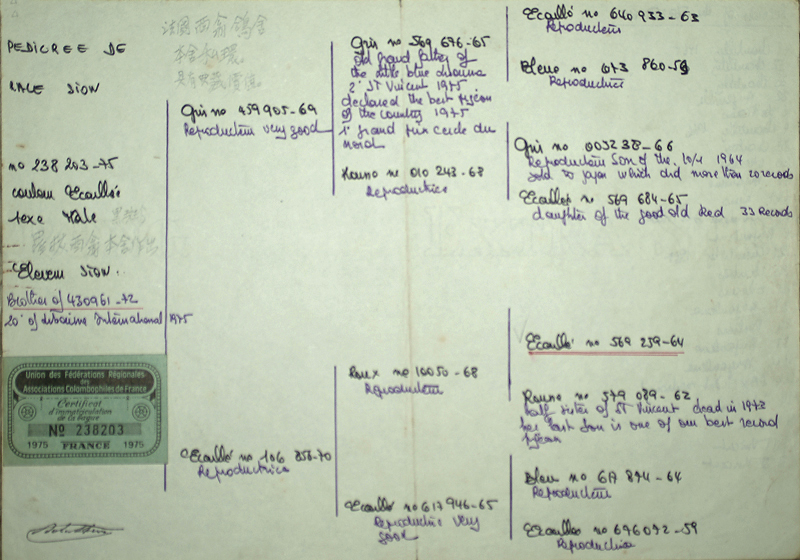 PEDIGREE DE
RACE SION
no 238 203-75
couleur Ecaillé
sexe Male
Eleveur SION.
Brother of 430961-72
20° of Libourne International 1975
Union des Fédérations Régionales
des
Associations Colombophiles de France
Certificat
d'immatriculation
de la bague
No 238203
1975 FRANCE 1975
法國西翁鴿舍
Gris no 459905-69
Reproducteur very good
Ecaillé no 106 858-70
Reproductrice
Gris no 569 676-65
old grand father of
the little blue
2° St Vincent 1975
declared the best pigeon
of the country 1975
1° grand prix cercle du
nord
Rouno no 010 243-68
Reproductrice
Roux no 10050-68
Reproducteur
Ecaillé no 617 946-65
Reproductrice very
good
Ecaillé no 640 933-63
Reproducteur
Bleue no 073 860-59
Reproductrice
Gris no 003238-66
Reproducteur Son of the 1964
sold to japan which did more than 20 records
Ecaillé no 569 684-65
daughter of the good old Red 33 Records
Ecaillé no 569 259-64
Rouno no 579 089-62
half sister of St Vincent dead in 1973
her last son is one of our best record
pigeon
Bleu no 617 894-64
Reproducteur
Ecaillée no 696092-59
Reproductrice